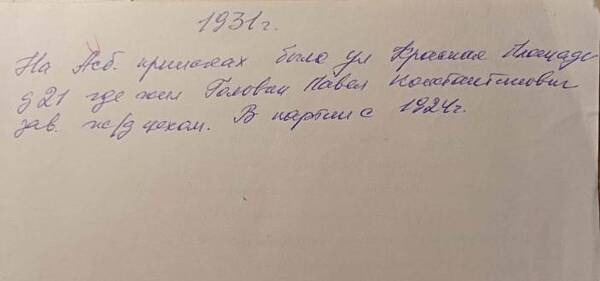 1931 г.
На Асб. приисках была ул Красная Площадь
д 21 где жил Головин Павел Константинович
зав. ж/д цехом. В партии с 1924 г.